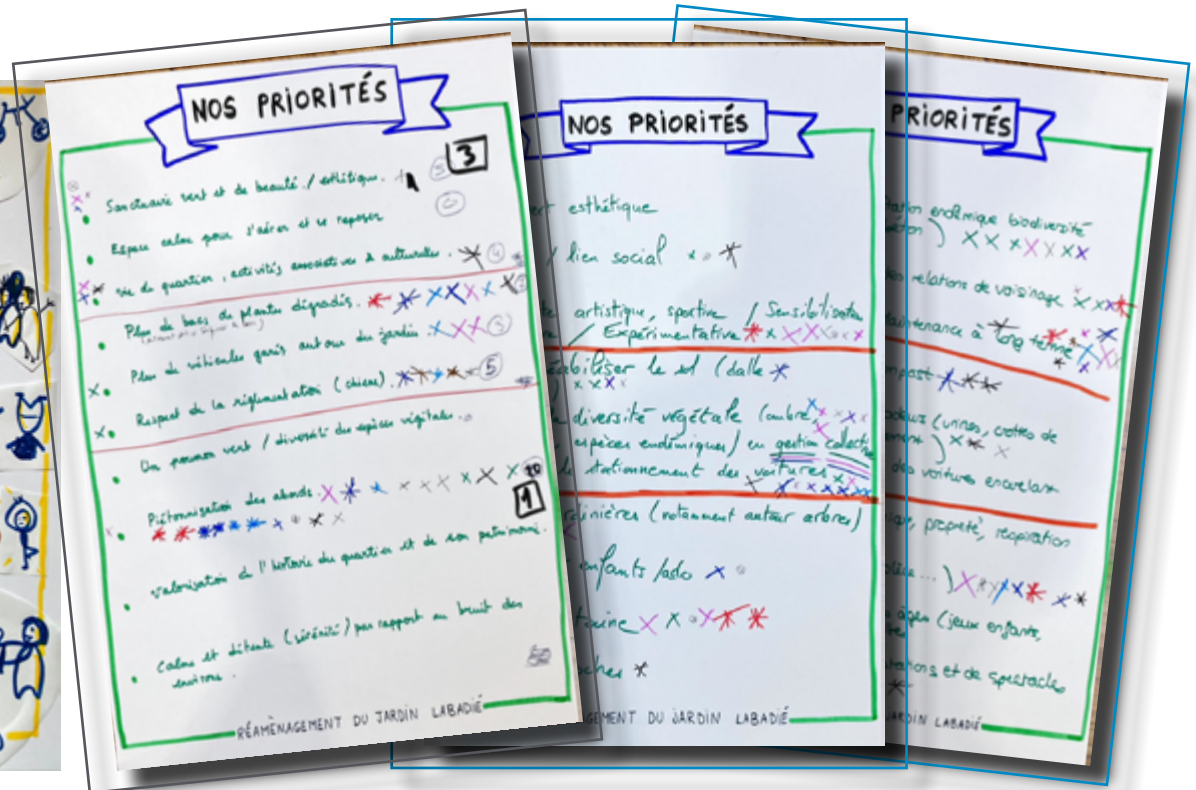 NOS PRIORITÉS
3
Sanctuaire vert et de beauté / esthétique.
5
Espace calme pour s'aérer et se reposer
vie de quartier, activités associatives & culturelles.
4
Plus de bacs de plantes dégradés.
Plus de véhicules garés autour du jardin.
3
Respect de la réglementation (chiens).
5
Un poumon vert / diversité des espèces végétales.
Piétonnisation des abords.
20
1
valorisation de l'histoire du quartier et de son patrimoine.
Calme et détente (sérénité) par rapport au bruit des
environs.
RÉAMÉNAGEMENT DU JARDIN LABADIÉ
NOS PRIORITÉS
esthétique
/ lien social
artistique, sportive / Sensibilisation
/ Expérimentative
le sol (dalle
diversité végétale (ombre,
espèces endémiques) en gestion collective
stationnement des voitures
(notamment autour arbres)
enfants /ado
MENT DU JARDIN LABADIÉ
PRIORITÉS
endémique biodiversité
relations de voisinage
maintenance à long terme
(urines, crottes de
des voitures
propreté, respiration
âges (jeux enfants,
et de spectacles
LABADIÉ